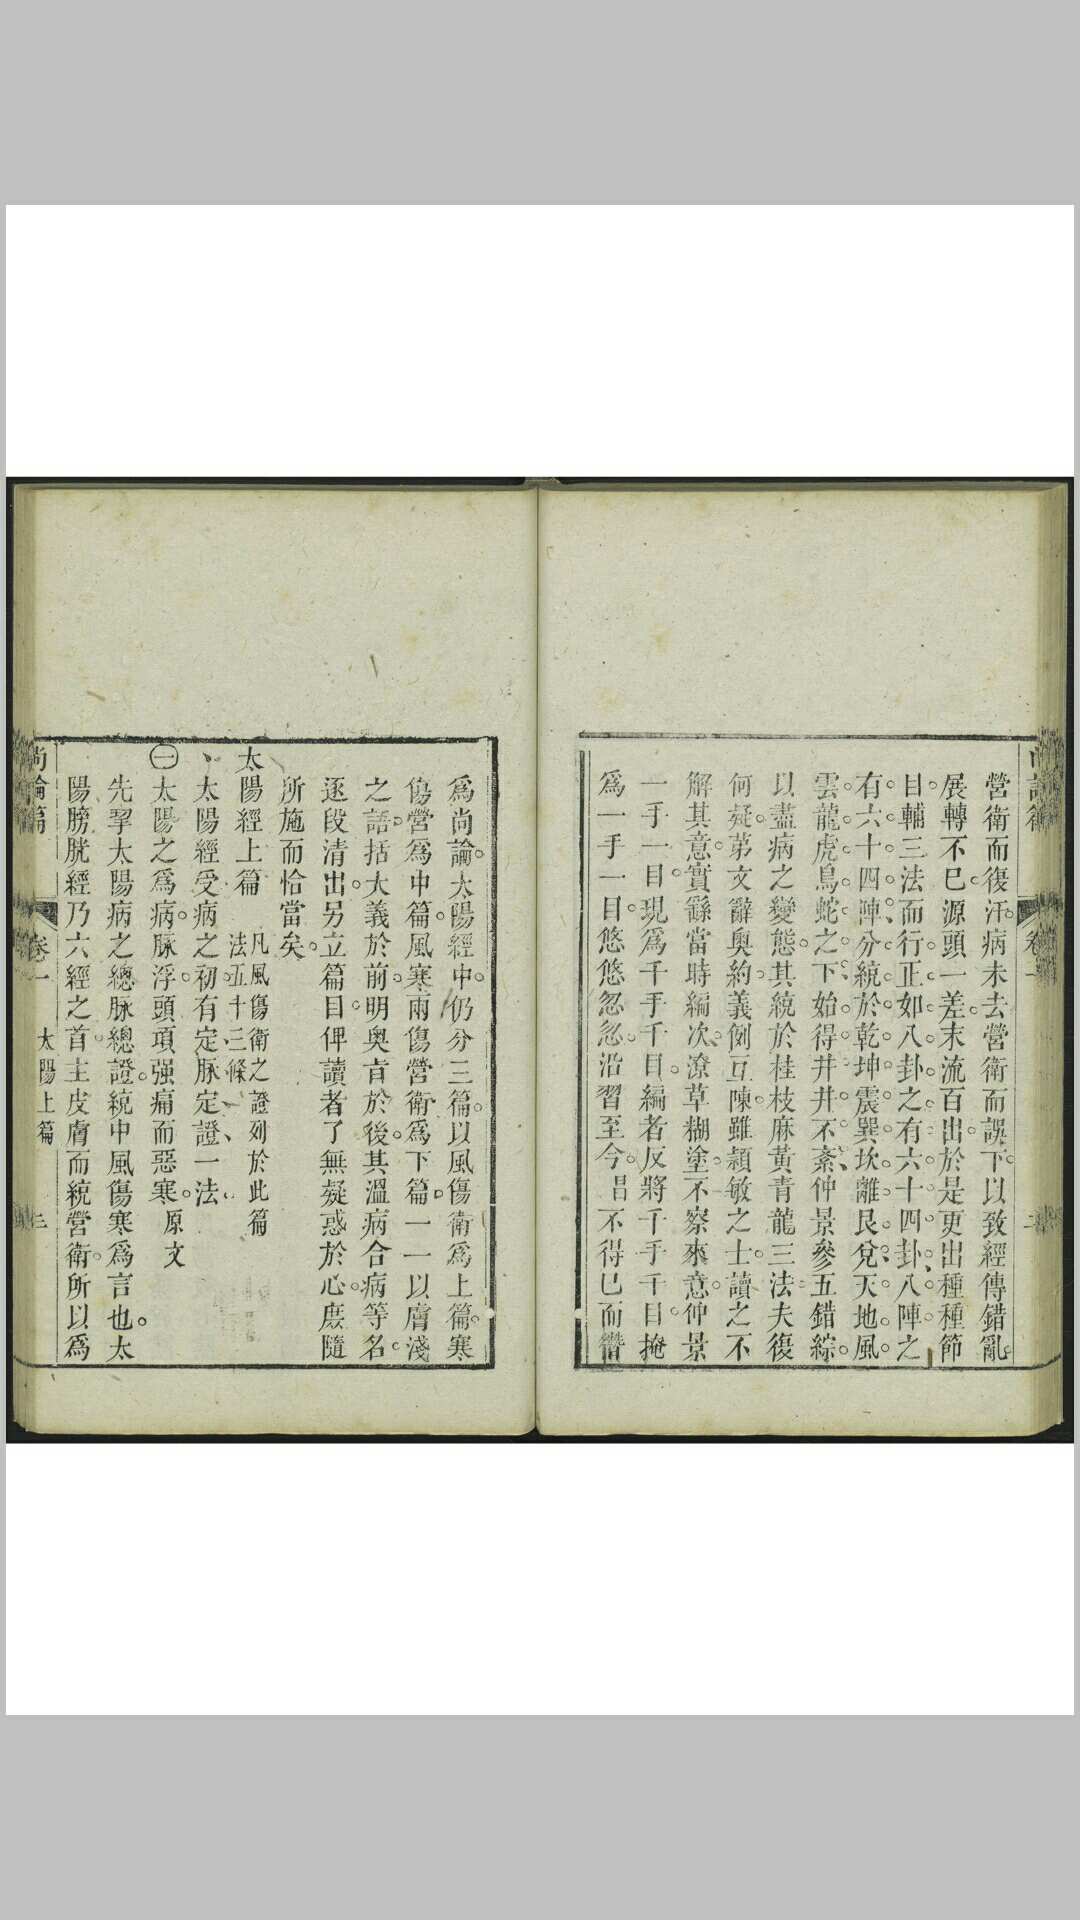 營衛而復汗。病未去營衛而誤下。以致經傳錯亂
展轉不已。源頭一差。末流百出。於是更出種種節
目。輔三法而行。正如八卦之有六十四卦、八陣之
有六十四陣、分統於乾坤震巽坎離艮兌、天地風
雲龍虎鳥蛇之下。始得井井不紊。仲景參五錯綜。
以盡病之變態。其統於桂枝麻黃青龍三法。夫復
何疑。第文辭奧約。義例互陳。雖穎敏之士。讀之不
解其意。實繇當時編次。潦草糊塗。不察來意。仲景
一手一目。現爲千手千目。編者反將千手千目。掩
爲一手一目。悠悠忽忽。沿習至今。昌不得已而僭
爲尚論。太陽經中。仍分三篇。以風傷衛爲上篇。寒
傷營爲中篇。風寒兩傷營衛爲下篇。一一以膚淺
之語。括大義於前。明奧旨於後。其溫病合病等名。
逐段清出。另立篇目。俾讀者了無疑惑於心。庶隨
所施而恰當矣。
太陽經上篇 凡風傷衛之證列於此篇
法五十三條
太陽經受病之初有定脉定證一法
㊀太陽之爲病。脉浮。頭項强痛而惡寒。原文
先挈太陽病之總脉總證。統中風傷寒爲言也。太
陽膀胱經乃六經之首。主皮膚而統營衛。所以爲
尚論篇 卷一 太陽上篇 三